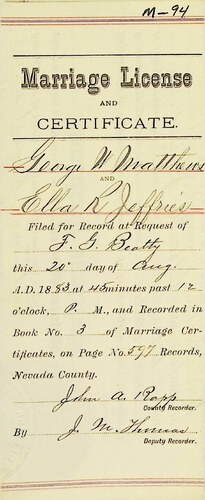 M-94
Marriage License
AND
CERTIFICATE.
George W Matthews
AND
Ella R Jeffries
Filed for Record at Request of
F. G. Beatty
this 20" day of Aug.
A.D. 1883 at 45 minutes past 12
o'clock, P. M., and Recorded in
Book No. 3 of Marriage Cer-
tificates, on Page No. 597 Records,
Nevada County.
John A. Rapp
County Recorder.
By J. M. Thomas
Deputy Recorder.